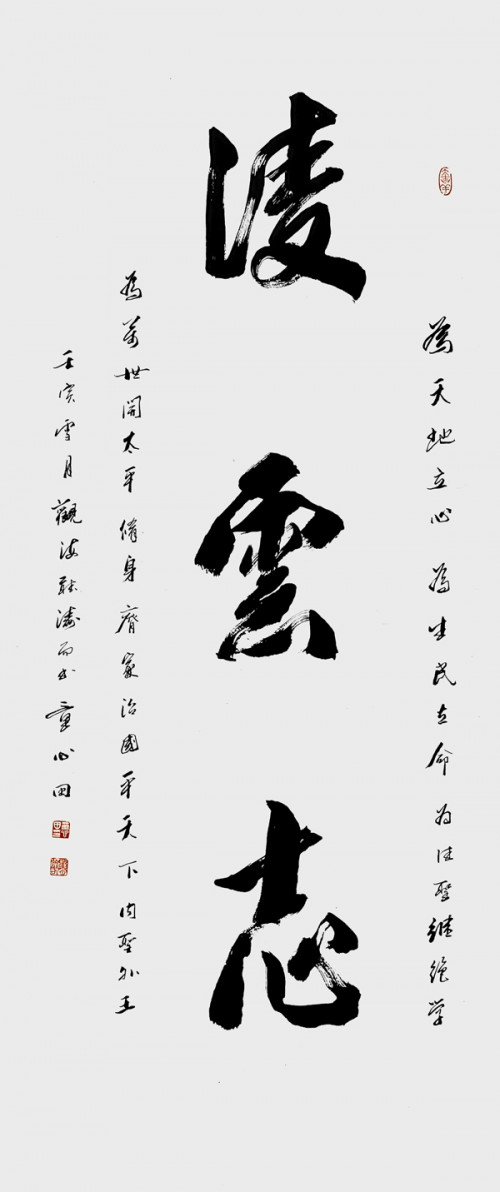 為天地立心 為生民立命 为往聖継絕学
淩雲志
為萬世開太平 脩身齊家治國平天下 内聖外王
壬寅雪月觀海聽濤而书 童心田